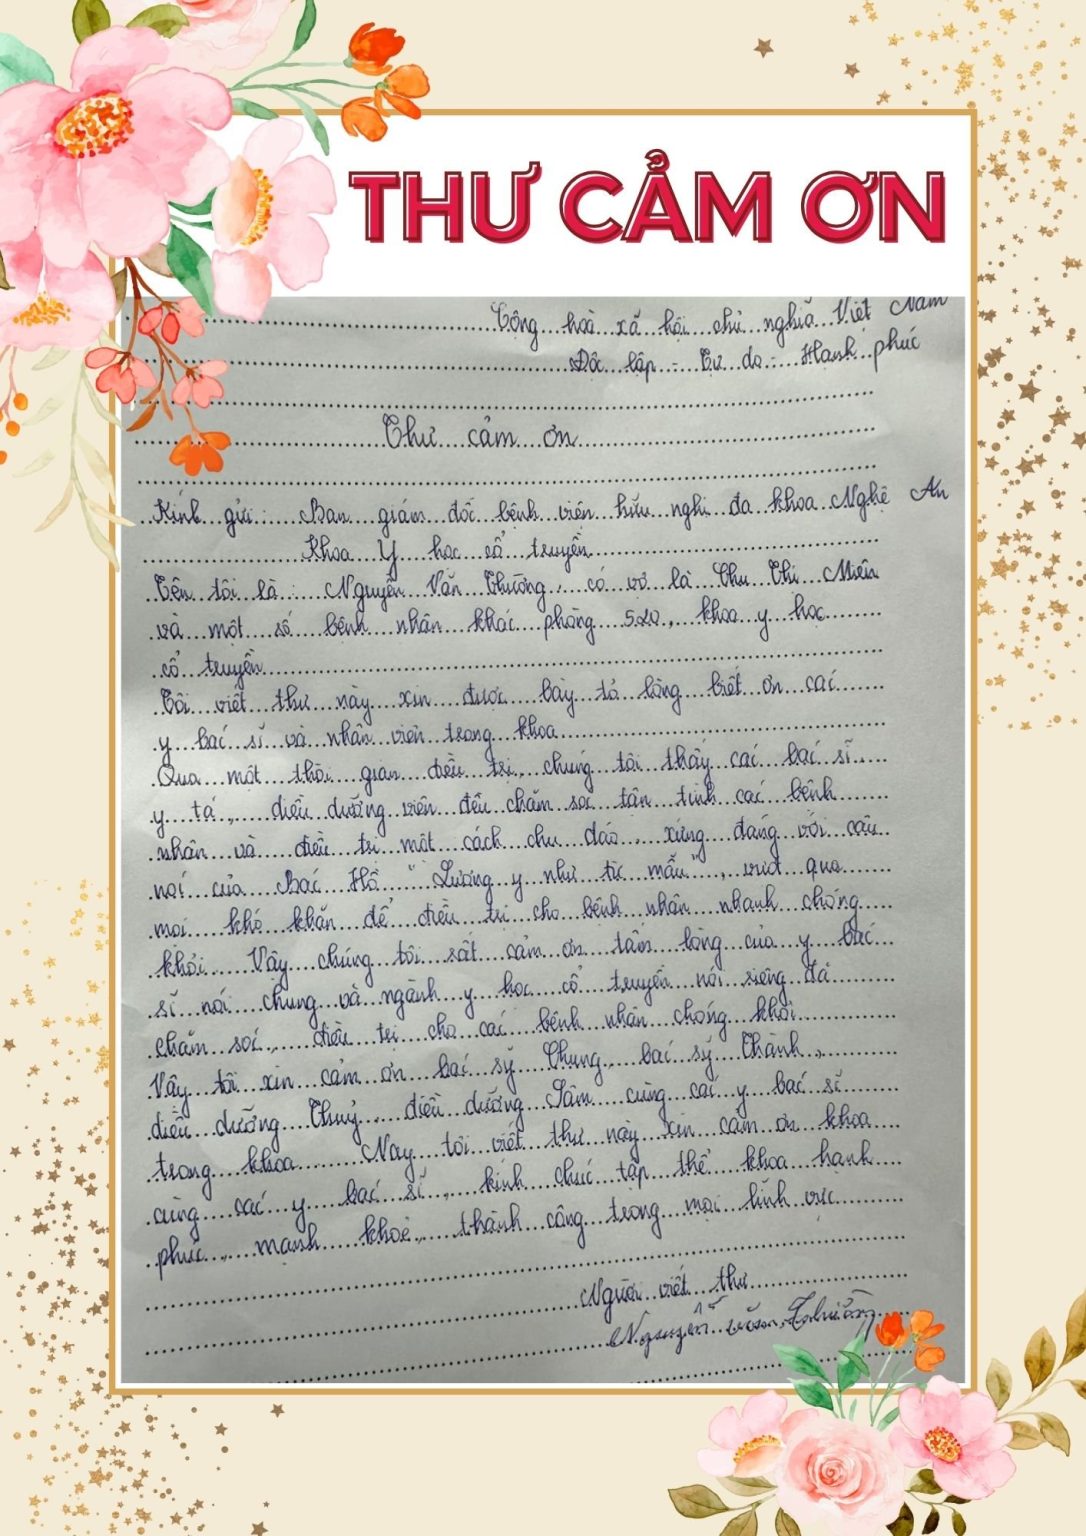 THƯ CẢM ƠN
Cộng hoà xã hội chủ nghĩa Việt Nam
Độc lập - Tự do - Hạnh phúc
Thư cảm ơn
Kính gửi: Ban giám đốc bệnh viện hữu nghị đa khoa Nghệ An
Khoa Y học cổ truyền
Tên tôi là: Nguyễn Văn Thường, có vợ là Chu Thị Miên
và một số bệnh nhân khác phòng 520, khoa y học
cổ truyền
Tôi viết thư này xin được bày tỏ lòng biết ơn các
y bác sĩ và nhân viên trong khoa
Qua một thời gian điều trị, chúng tôi thấy các bác sĩ
y tá, điều dưỡng viên đều chăm sóc tận tình các bệnh
nhân và điều trị một cách chu đáo, xứng đáng với câu
nói của Bác Hồ "Lương y như từ mẫu", vượt qua
mọi khó khăn để điều trị cho bệnh nhân nhanh chóng
khỏi. Vậy chúng tôi rất cảm ơn tấm lòng của y bác
sĩ nói chung và ngành y học cổ truyền nói riêng đã
chăm sóc, điều trị cho các bệnh nhân chóng khỏi
Vậy tôi xin cảm ơn bác sỹ Chung, bác sỹ Thành,
điều dưỡng Thuỷ, điều dưỡng Sâm cùng các y bác sĩ
trong khoa. Nay tôi viết thư này xin cảm ơn khoa
cùng các y bác sĩ, kính chúc tập thể khoa hạnh
phúc, mạnh khoẻ, thành công trong mọi lĩnh vực
Người viết thư
Nguyễn văn Thường